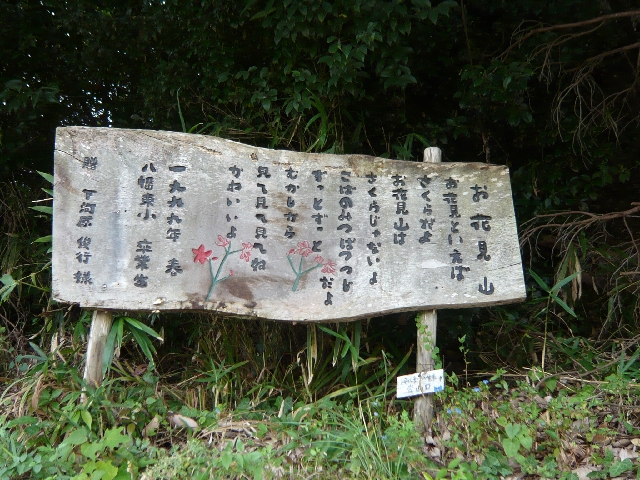 お花見山
お花見といえば
さくらだよ
お花見山は
さくらじゃないよ
こばのみつばつつじ
だよ
ずっとずっと
むかしから
見て見て見てね
かわいいよ
一九九九年 春
八幡東小 卒業生
贈 下河原 俊行 様